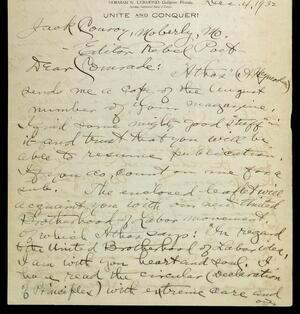 UNITE AND CONQUER!
Dec. 4, 1932
Jack Conroy, Moberly, Mo.
Editor Rebel Poet
Dear Comrade:
sends me a copy of the August
number of your magazine.
I find some mighty good stuff in
it and trust that you will be
able to resume publication.
If you do, count on me for a
sub. The enclosed leaflet will
acquaint you with our new United
Brotherhood of Labor movement
of which Athos says: In regard
to the United Brotherhood of Labor idea,
I am with you heart and soul. I
have read the circular (Declaration
of Principles) with extreme care and